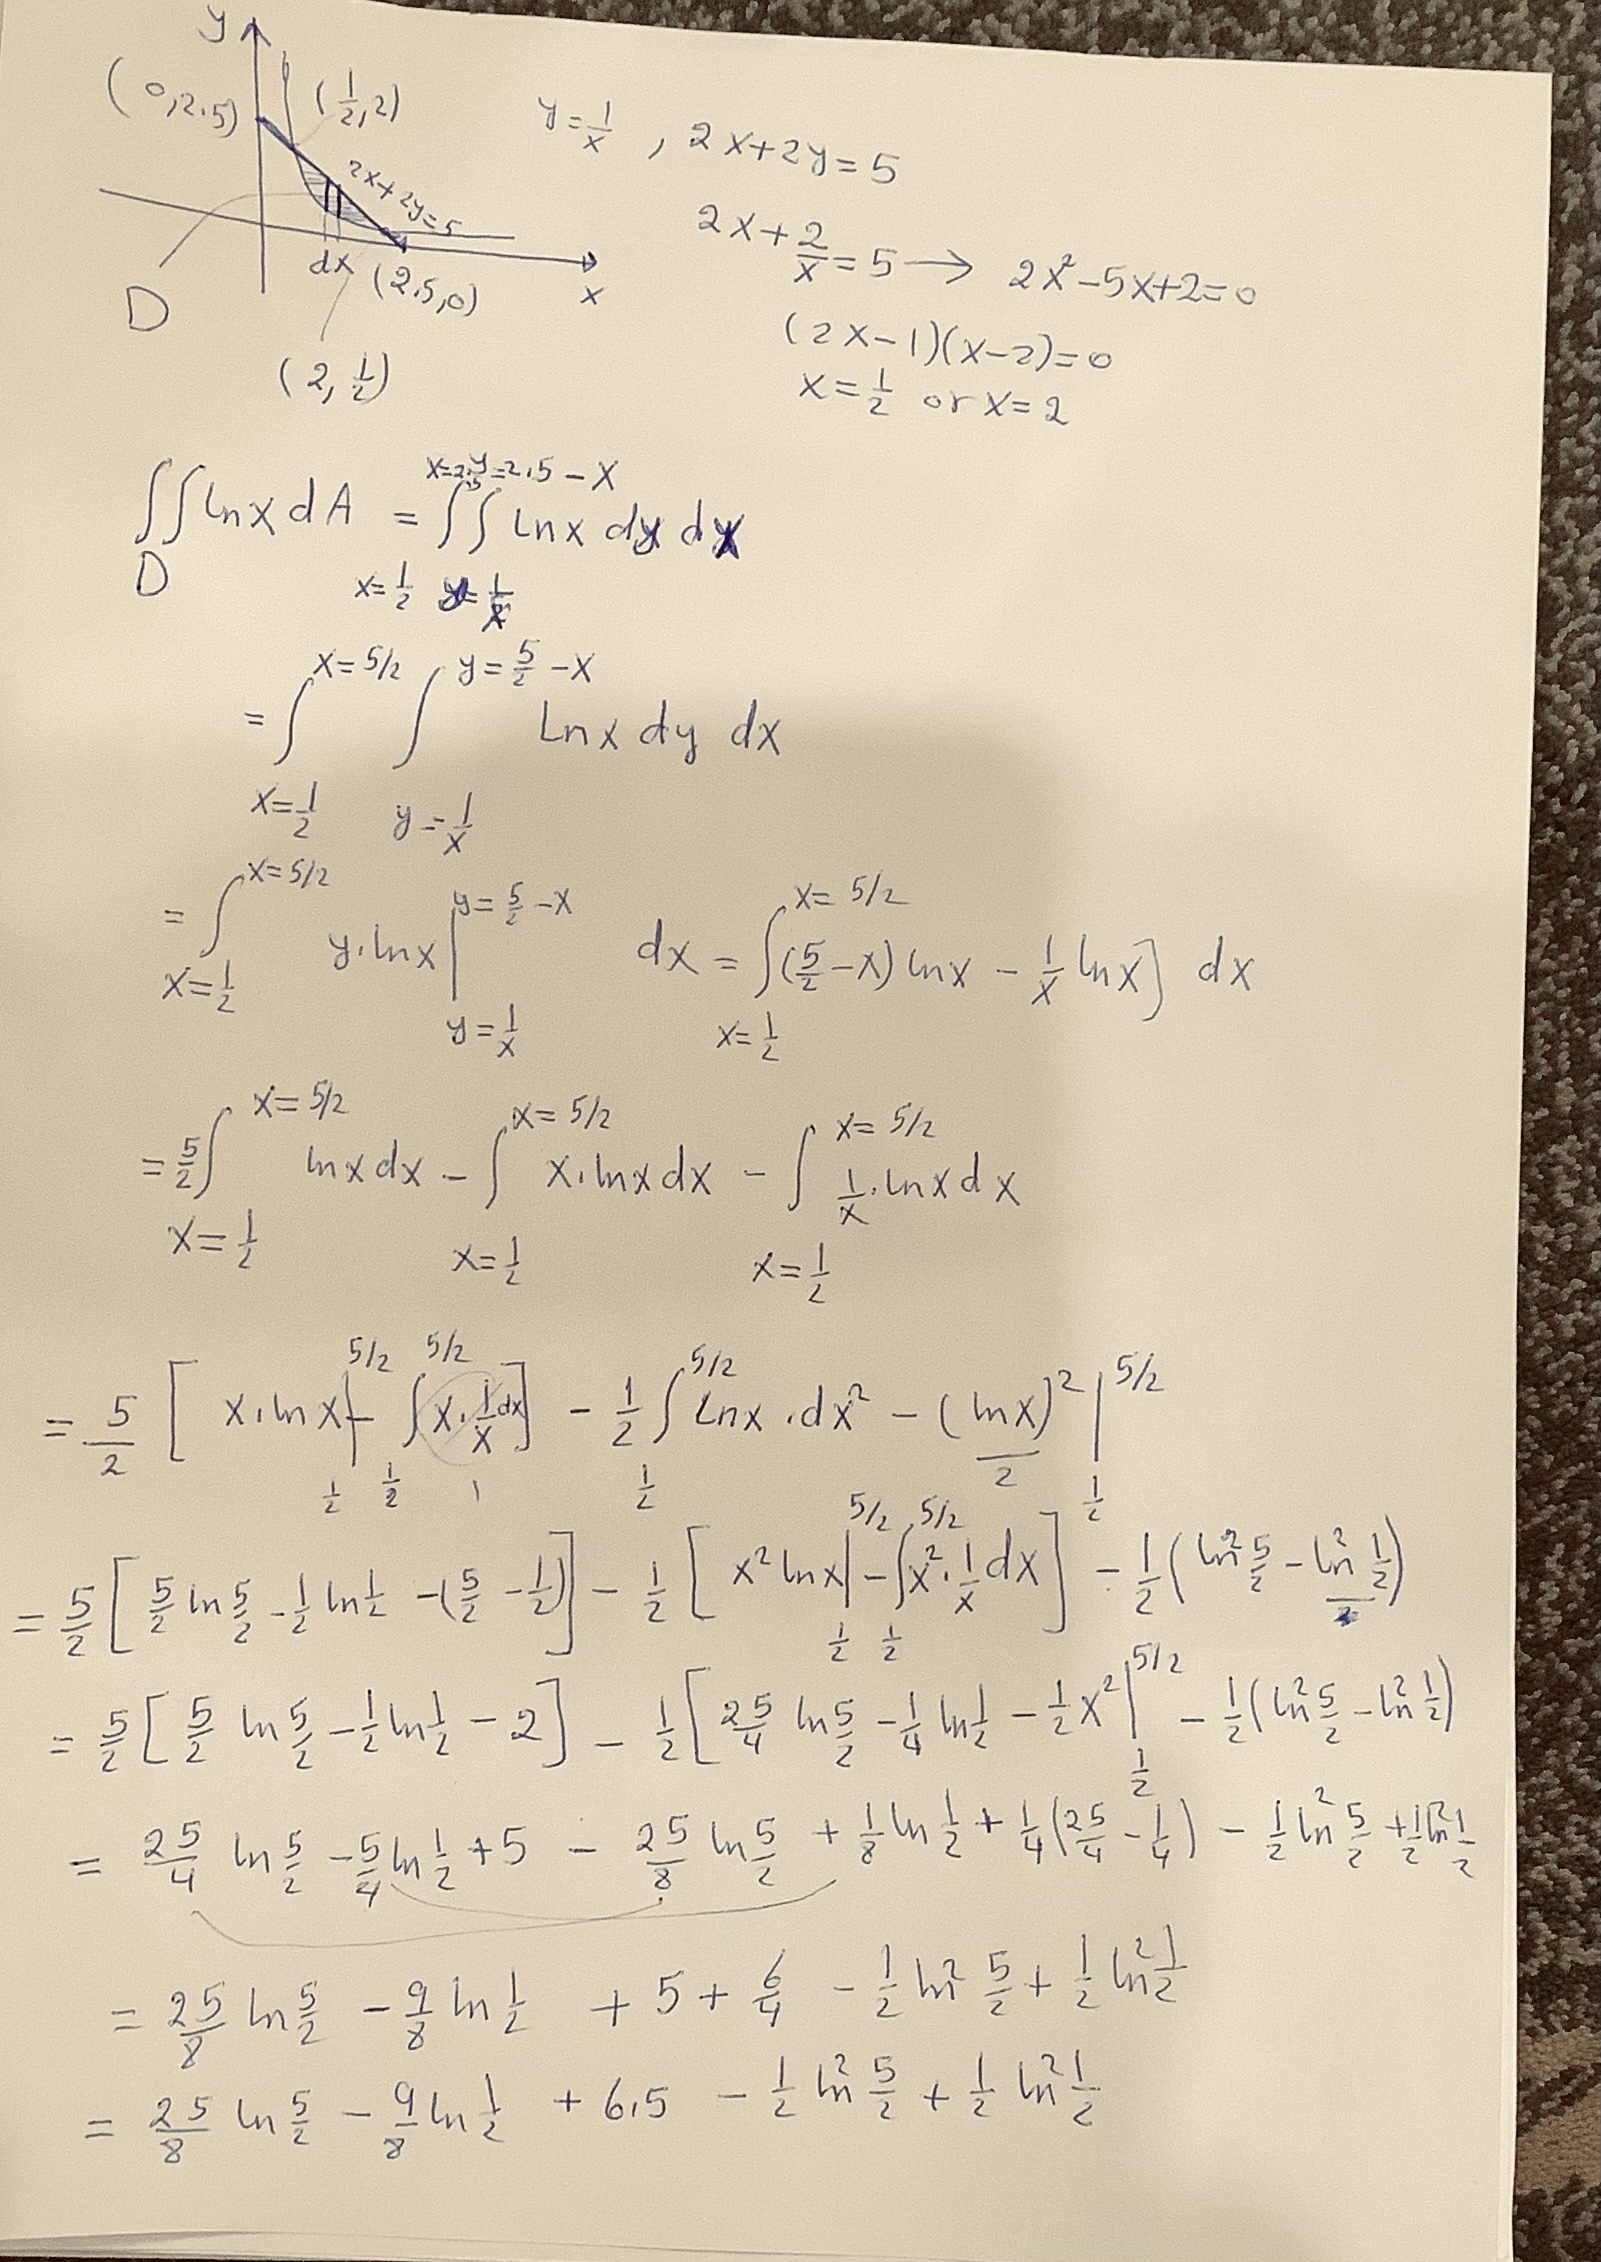 y
(0,2.5)
(1/2,2)
2x+2y=5
dx
(2.5,0)
x
D
(2, 1/2)
y=1/x , 2x+2y=5
2x+2/x=5 → 2x²-5x+2=0
(2x-1)(x-2)=0
x=1/2 or x=2
∬_D lnx dA = ∫_{x=1/2}^{x=2.5} ∫_{y=1/x}^{y=2.5-x} lnx dy dx
= ∫_{x=1/2}^{x=5/2} ∫_{y=1/x}^{y=5/2-x} lnx dy dx
= ∫_{x=1/2}^{x=5/2} y.lnx |_{y=1/x}^{y=5/2-x} dx = ∫_{x=1/2}^{x=5/2} (5/2-x) lnx - 1/x lnx] dx
= 5/2 ∫_{x=1/2}^{x=5/2} lnx dx - ∫_{x=1/2}^{x=5/2} x.lnx dx - ∫_{x=1/2}^{x=5/2} 1/x.lnx dx
= 5/2 [x.lnx|_{1/2}^{5/2} - ∫_{1/2}^{5/2} x.1/x dx] - 1/2 ∫_{1/2}^{5/2} lnx.dx² - (lnx)²/2 |_{1/2}^{5/2}
1
= 5/2 [5/2 ln 5/2 - 1/2 ln 1/2 - (5/2 - 1/2)] - 1/2 [x² lnx|_{1/2}^{5/2} - ∫_{1/2}^{5/2} x².1/x dx] - 1/2 (ln² 5/2 - ln² 1/2)
= 5/2 [5/2 ln 5/2 - 1/2 ln 1/2 - 2] - 1/2 [25/4 ln 5/2 - 1/4 ln 1/2 - 1/2 x²|_{1/2}^{5/2} - 1/2 (ln² 5/2 - ln² 1/2)
= 25/4 ln 5/2 - 5/4 ln 1/2 + 5 - 25/8 ln 5/2 + 1/8 ln 1/2 + 1/4 (25/4 - 1/4) - 1/2 ln² 5/2 + 1/2 ln² 1/2
= 25/8 ln 5/2 - 9/8 ln 1/2 + 5 + 6/4 - 1/2 ln² 5/2 + 1/2 ln² 1/2
= 25/8 ln 5/2 - 9/8 ln 1/2 + 6.5 - 1/2 ln² 5/2 + 1/2 ln² 1/2